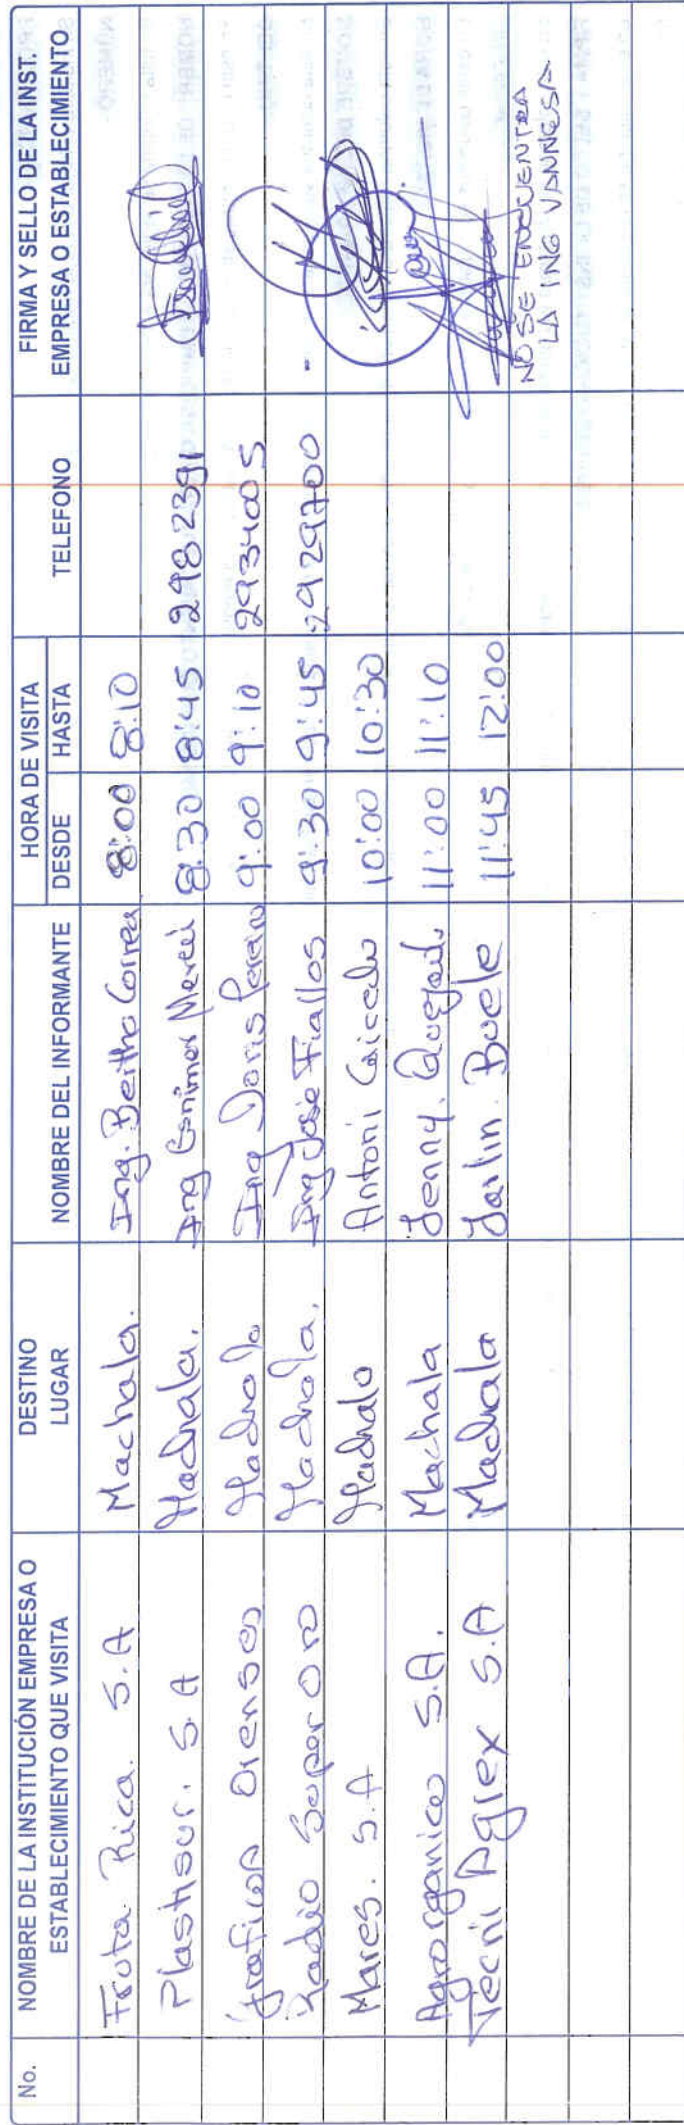 No. NOMBRE DE LA INSTITUCIÓN EMPRESA O ESTABLECIMIENTO QUE VISITA DESTINO LUGAR NOMBRE DEL INFORMANTE HORA DE VISITA DESDE HASTA TELEFONO FIRMA Y SELLO DE LA INST. EMPRESA O ESTABLECIMIENTO
Fruta Rica. S.A Machala. Ing. Bertha Correa 8:00 8:10
Plastisur. S.A Machala. Ing 8:30 8:45 2982391
Graficas Orenses Machala Ing Doris 9:00 9:10 2934005
Radio Super Oro Machala. Ing Jose Fiallos 9:30 9:45 2929700
Mares. S.A Machala Antoni Caicedo 10:00 10:30
Agrorganica S.A. Machala Jenny. 11:00 11:10
Tecni S.A Machala 11:45 12:00
NO SE ENCUENTRA
LA ING VANNESA